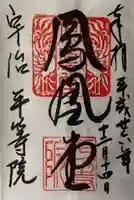 奉拝 平成廿二年
十二月十四日
鳳凰堂
宇治 平等院